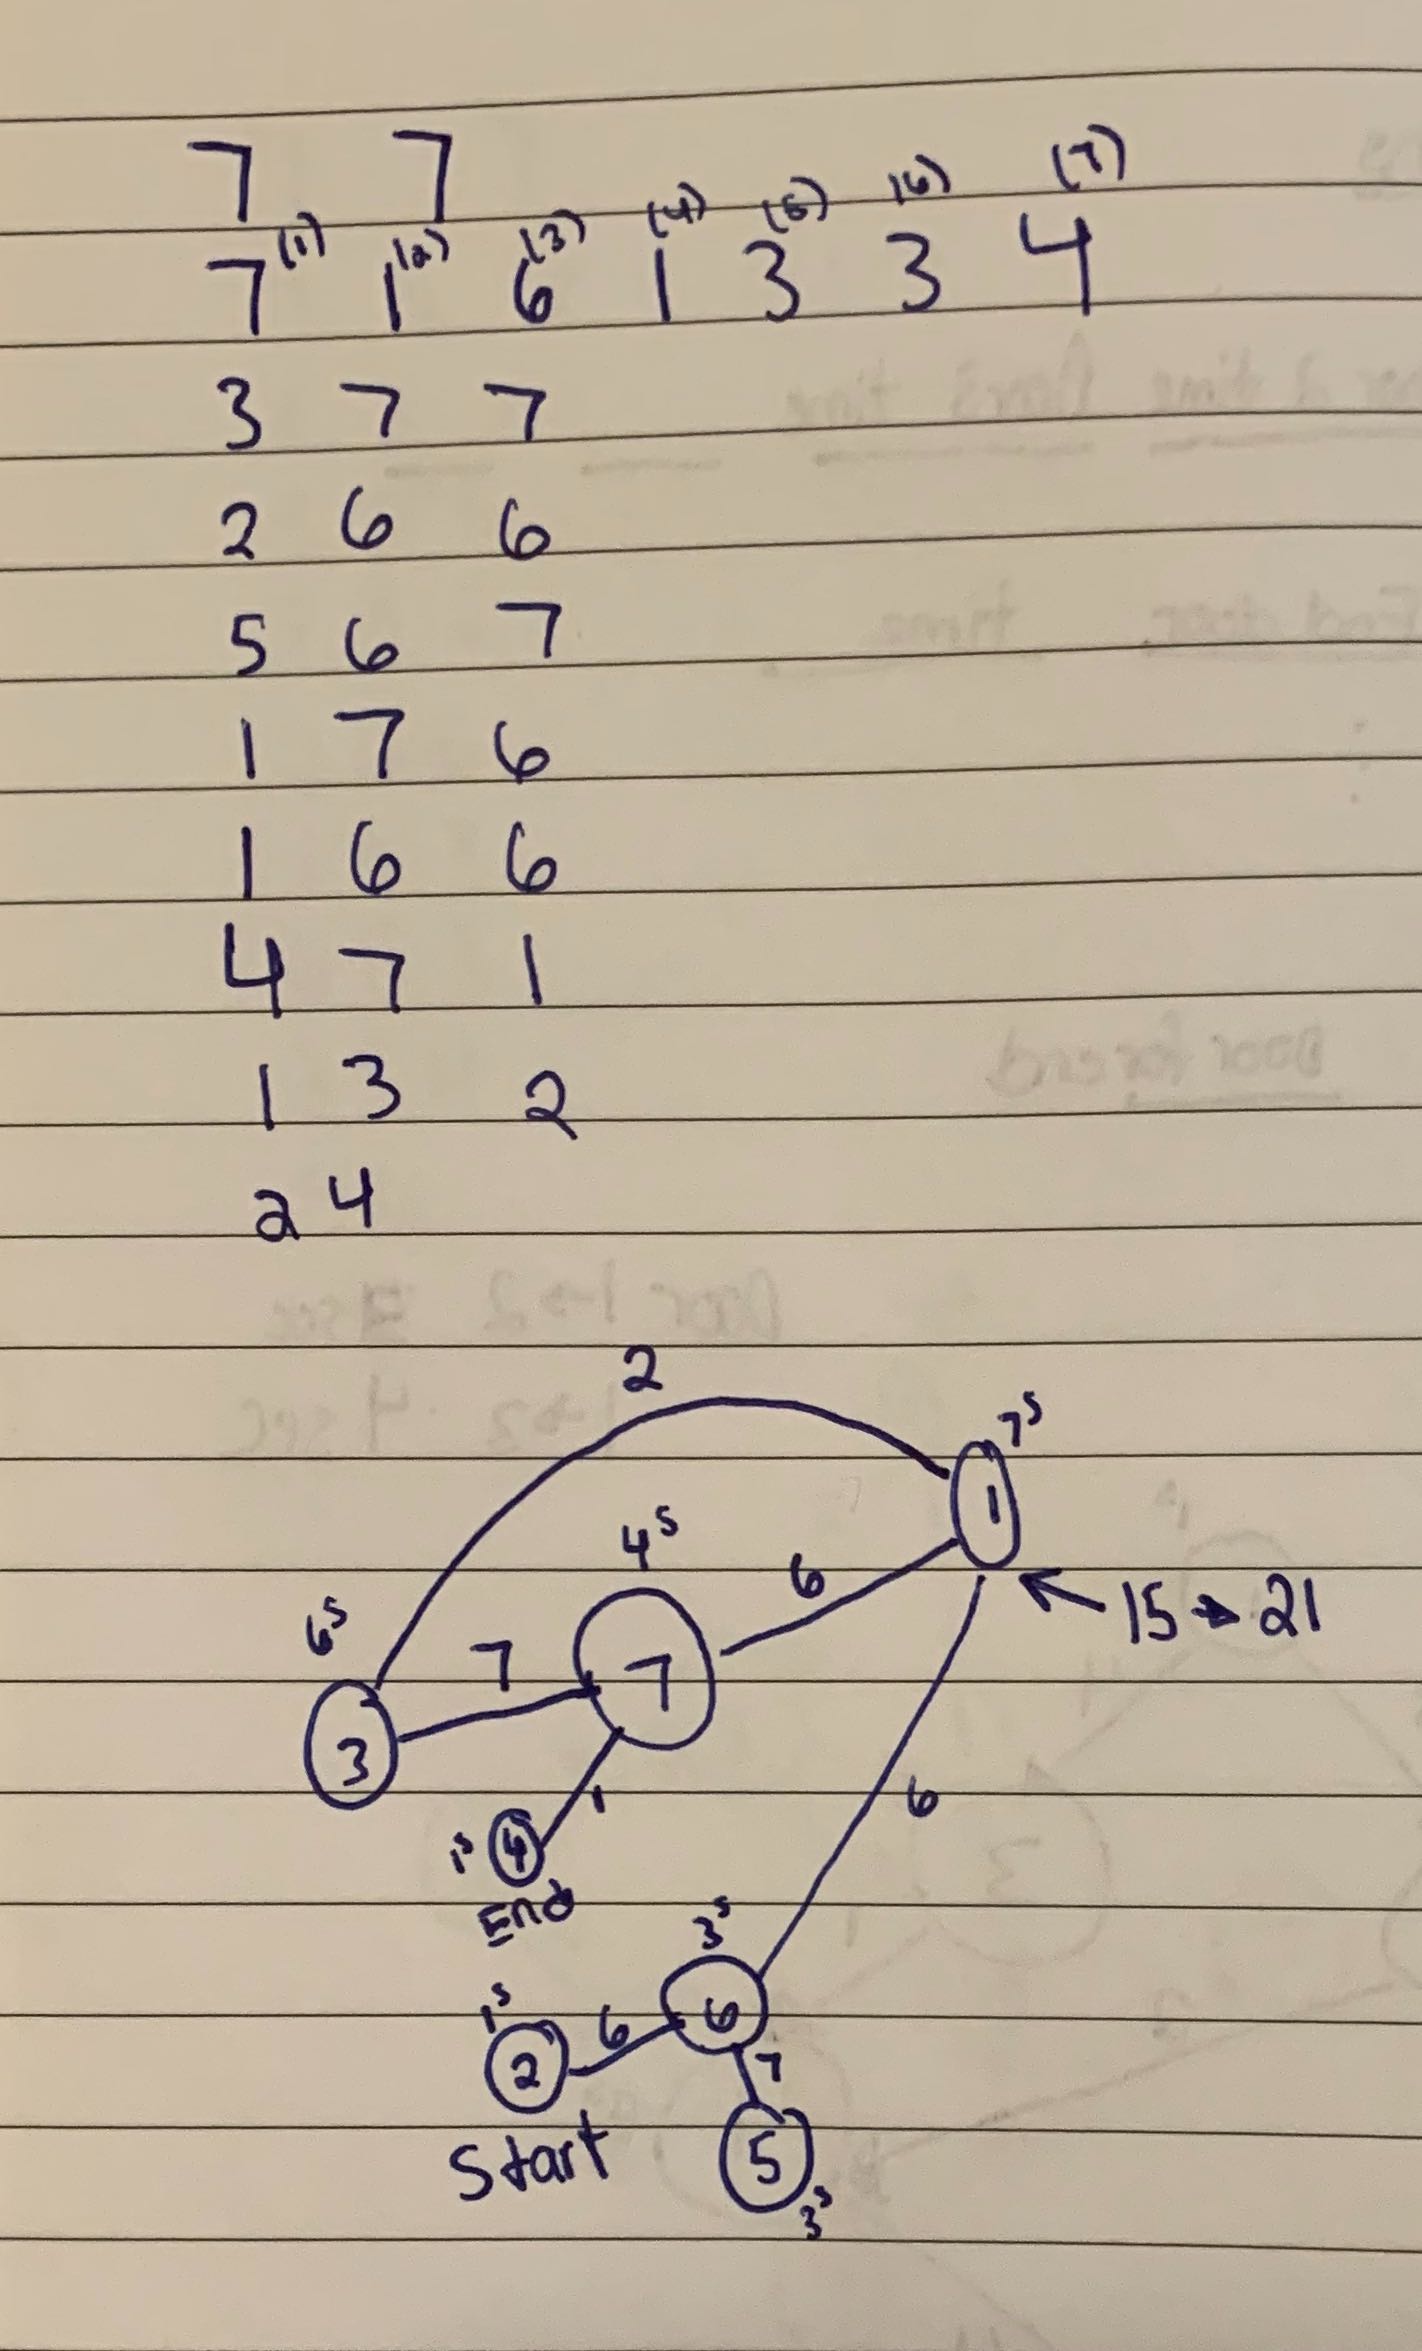 7 7
7(1) 1(2) 6(3) 1(4) 3(5) 3(6) 4(7)
3 7 7
2 6 6
5 6 7
1 7 6
1 6 6
4 7 1
1 3 2
2 4
2
7s
1
4s
6
15 → 21
6s
7
7
3
1
6
1s 4
End
3s
1s
6
6
2
7
Start
5
3s